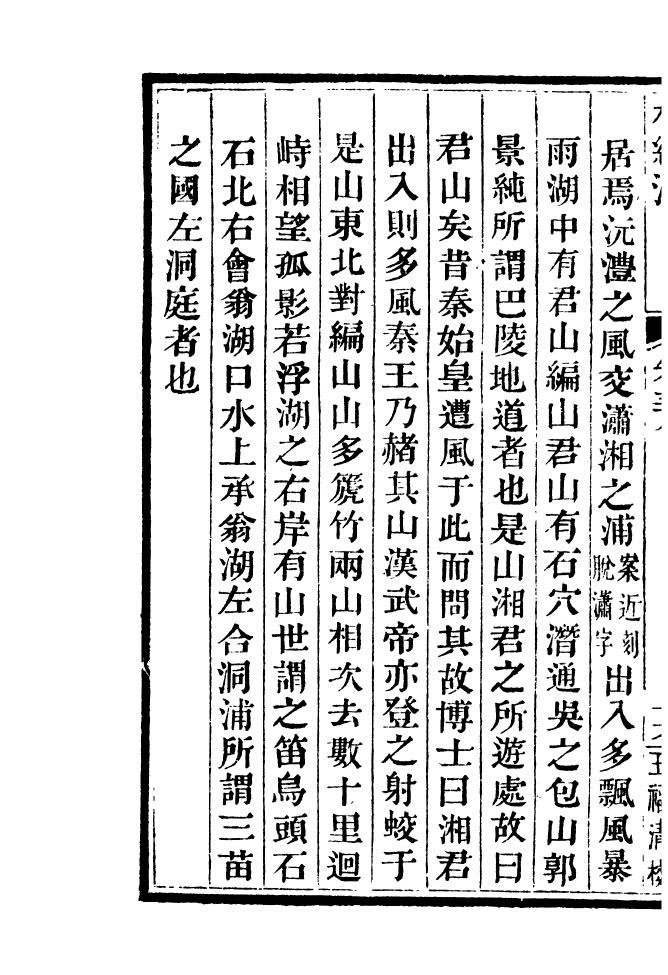 居焉沅澧之風交瀟湘之浦案近刻脫瀟字出入多飄風暴
雨湖中有君山編山君山有石穴潛通吳之包山郭
景純所謂巴陵地道者也是山湘君之所遊處故曰
君山矣昔秦始皇遭風于此而問其故博士曰湘君
出入則多風秦王乃赭其山漢武帝亦登之射蛟于
是山東北對編山山多篪竹兩山相次去數十里迴
峙相望孤影若浮湖之右岸有山世謂之笛烏頭石
石北右會翁湖口水上承翁湖左合洞浦所謂三苗
之國左洞庭者也